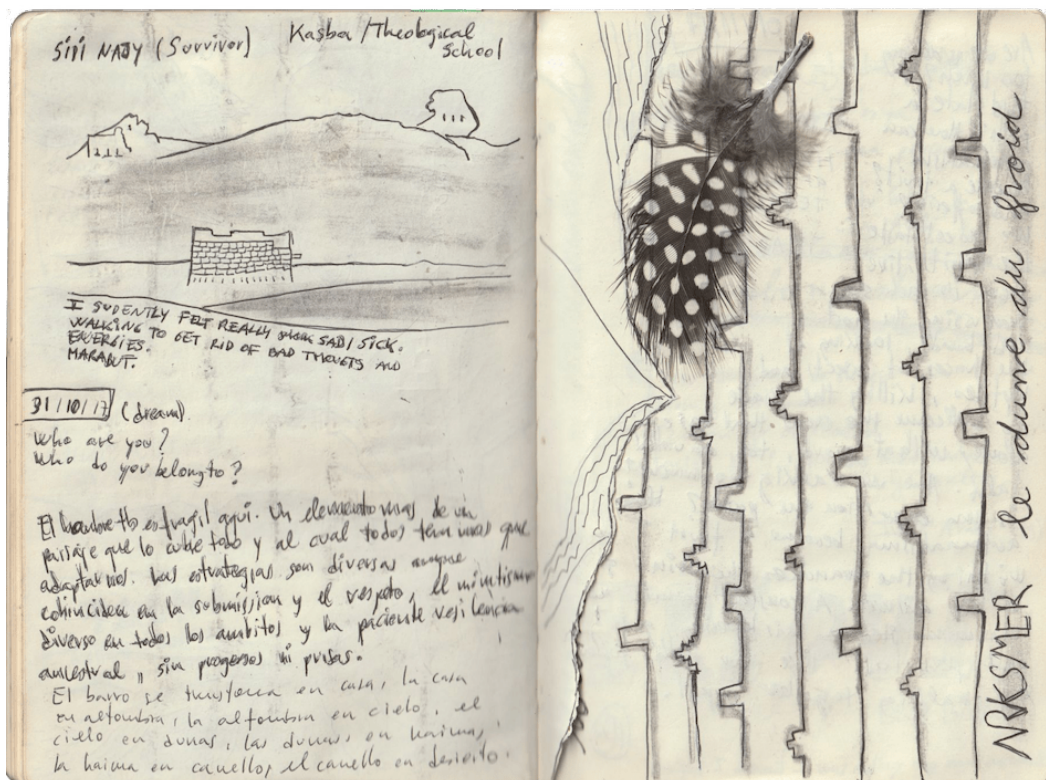 Siri NAJY (Survivor)
Kasba /Theological
School
I SUDENTLY FELT REALLY SAD/ SICK.
WALKING TO GET RID OF BAD THOUTS AND
ENERGIES.
MARABUT.
31/10/17 (dream)
Who are you?
Who do you belong to?
El es fragil aqui. Un elemento mas de un
paisaje que lo cubre todo y al cual todos tenemos que
adaptarnos. Las estrategias son diversas aunque
coinciden en la submission y el respeto, el mimetismo
diverso en todos los ambitos y la paciente resiliencia
ancestral, sin progresos ni prisas.
El barro se transforma en casa, la casa
en alfombra, la alfombra en cielo, el
cielo en dunas, las dunas en haima,
la haima en camello, el camello en desierto.
NRKSMER le dune du froid